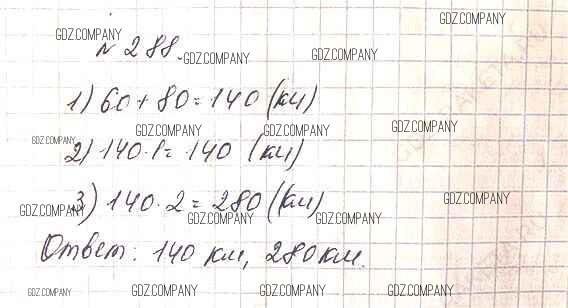 GDZ.COMPANY
№ 288.
GDZ.COMPANY GDZ.COMPANY GDZ.COMPANY
1) 60 + 80 = 140 (км)
GDZ.COMPANY GDZ.COMPANY GDZ.COMPANY GDZ.COMPANY
2) 140 · 1 = 140 (км)
3) 140 · 2 = 280 (км)
GDZ.COMPANY GDZ.COMPANY GDZ.COMPANY GDZ.COMPANY
Ответ: 140 км, 280 км.
GDZ.COMPANY GDZ.COMPANY GDZ.COMPANY GDZ.COMPANY